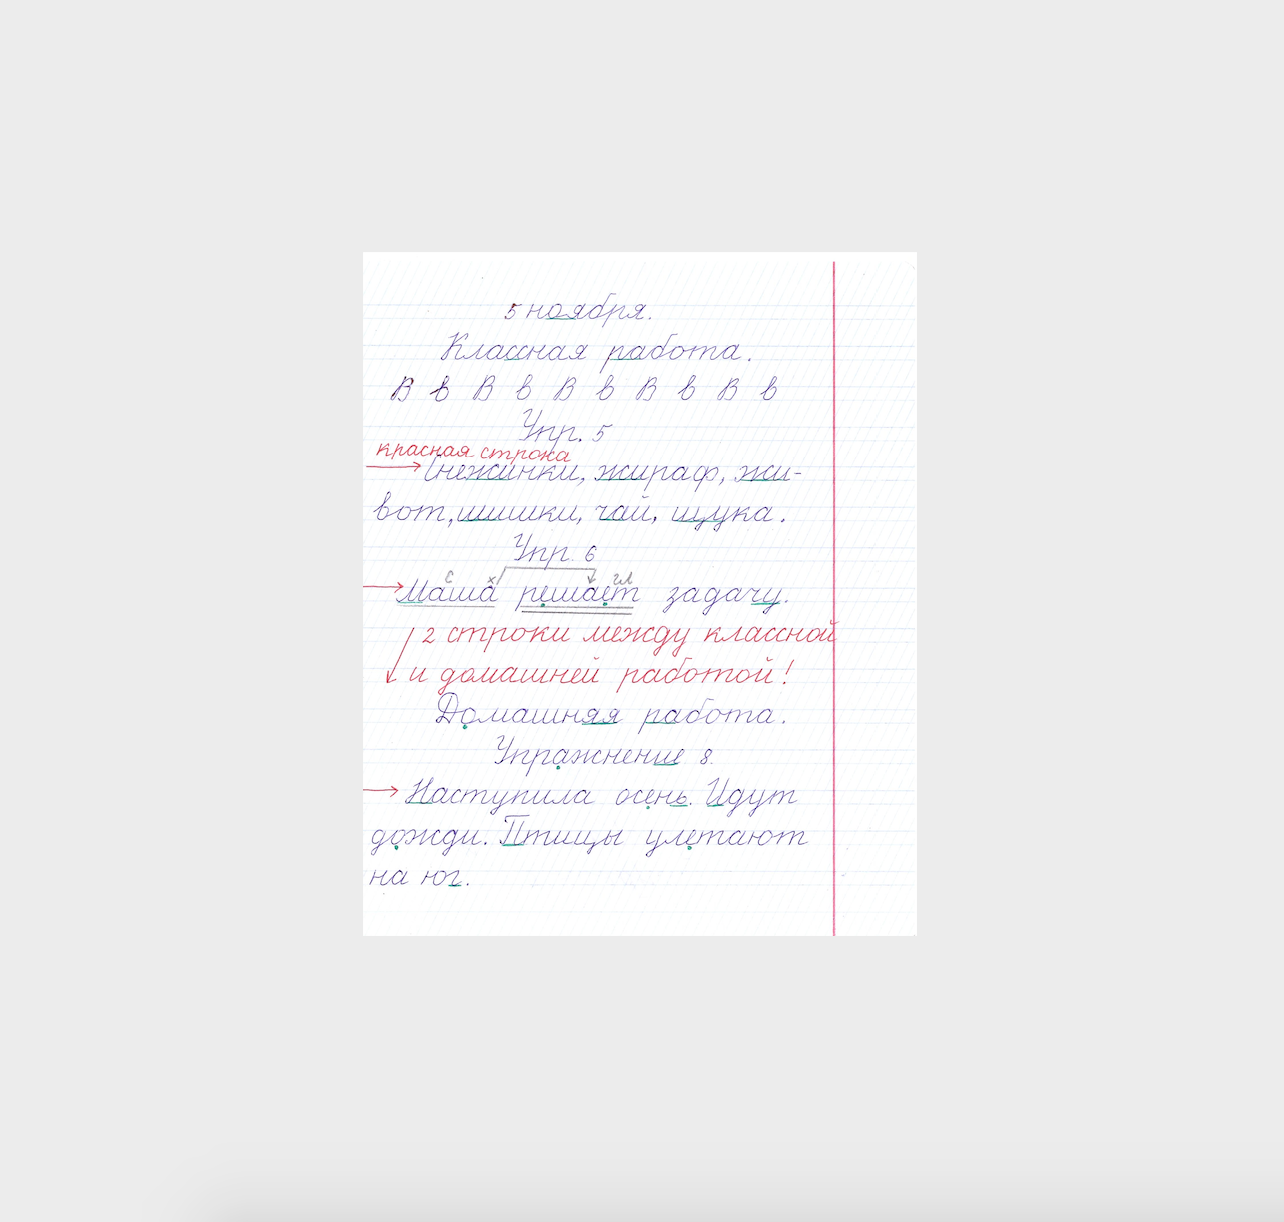 5 ноября.
Классная работа.
В в В в В в В в В в
Упр. 5
красная строка
Снежинки, жираф, жи-
вот, шишки, чай, щука.
Упр. 6
с х гл
Маша решает задачу.
2 строки между классной
и домашней работой!
Домашняя работа.
Упражнение 8.
Наступила осень. Идут
дожди. Птицы улетают
на юг.